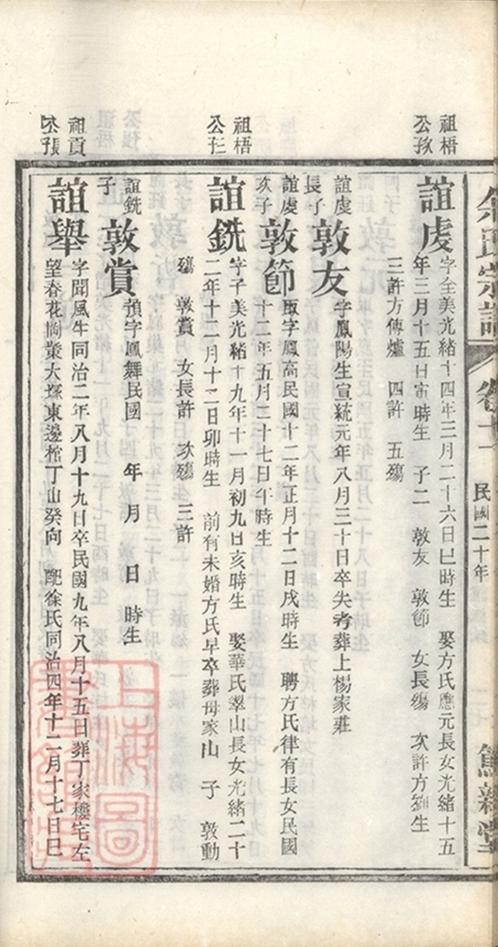 余氏宗譜
卷十一
民國二十年
祖梧
公孜
誼虔字全美光緒十四年三月二十六日巳時生 娶方氏應元長女光緒十五
年三月十五日寅時生 子二 敦友 敦節 女長殤 次許方 生
三許方傳爐 四許 五殤
誼虔
長子
敦友字鳳陽生宣統元年八月三十日卒失考葬上楊家莊
誼虔
次子
敦節 字鳳高民國十二年正月十二日戌時生 聘方氏律有長女民國
十二年五月二十七日午時生
祖梧
公
誼銑字子美光緒十九年十一月初九日亥時生 娶華氏翠山長女光緒二十
二年十二月十二日卯時生 前有未婚方氏早卒葬母家山 子 敦動
殤 敦賞 女長許 次殤 三許
誼銑
子
敦賞 預字鳳舞民國 年 月 日 時生
祖貢
公張
誼舉字聞風生同治二年八月十九日卒民國九年八月十五日葬丁家樓宅左
望春花崗 大塚東邊棺丁山癸向 配徐氏同治四年十二月十七日巳
上海圖